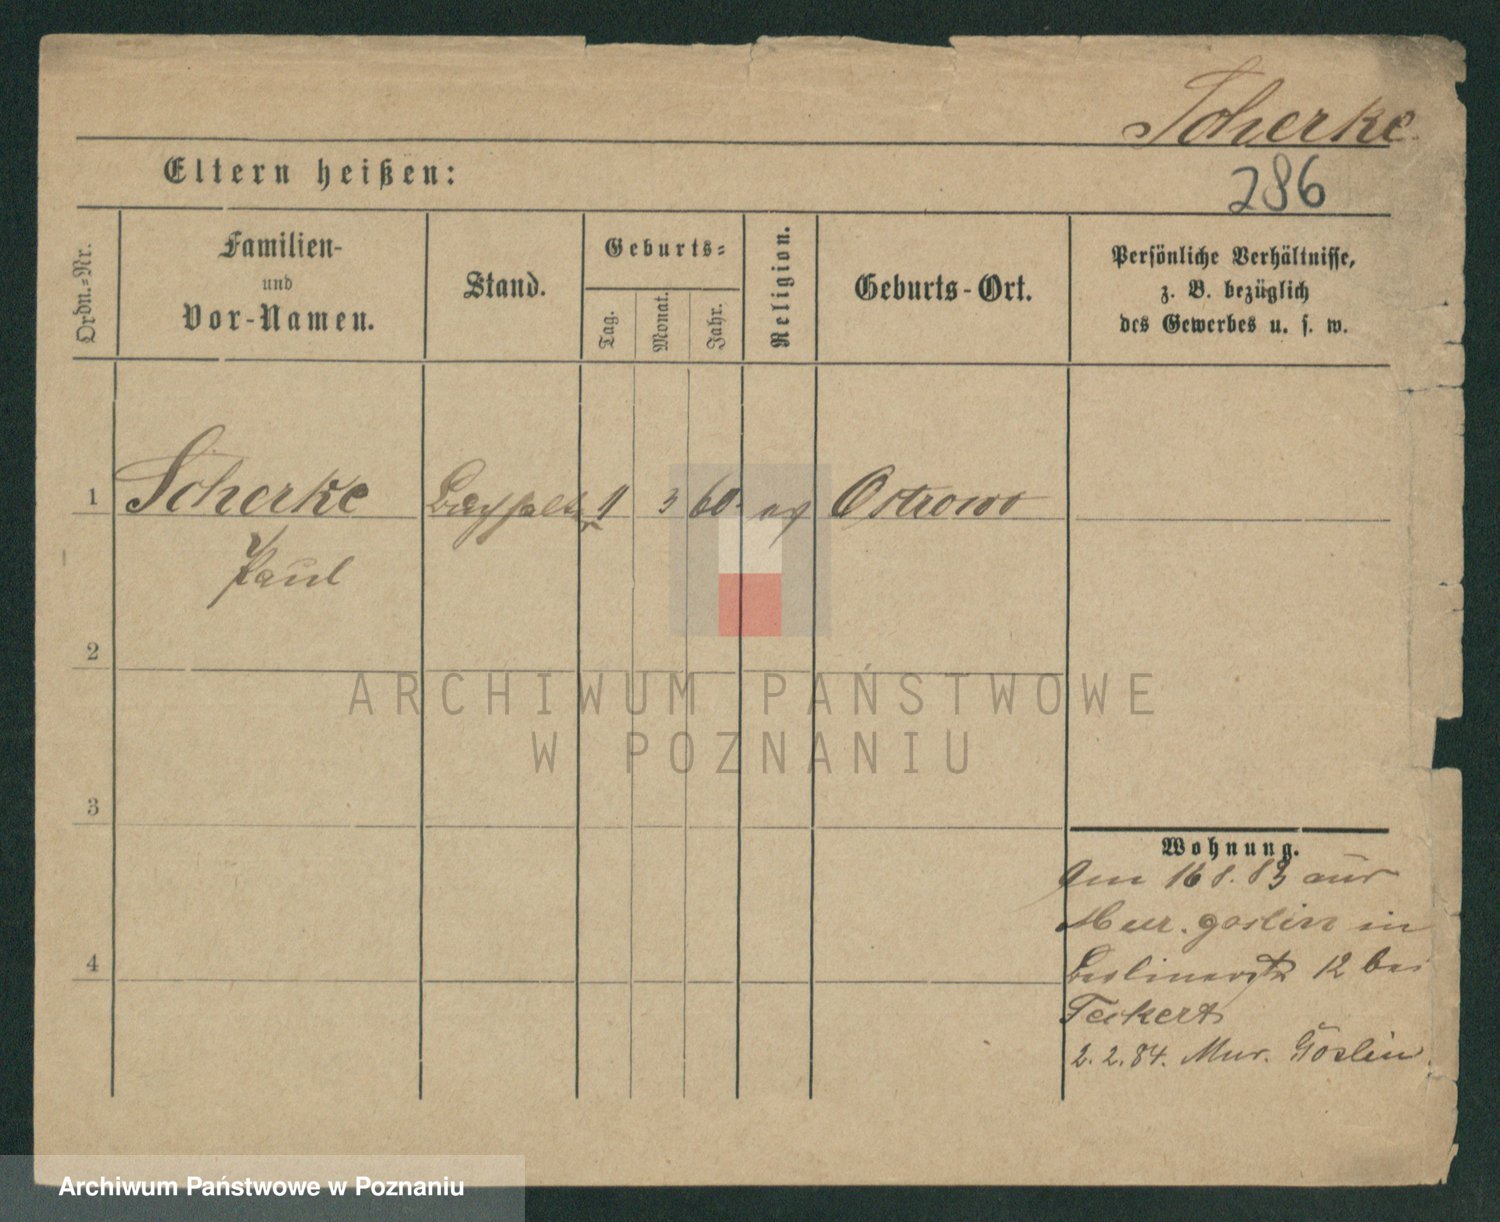 Scherke
Eltern heißen:
286
Ordn.=Nr.
Familien-
und
Vor-Namen.
Stand.
Geburts=
Tag.
Monat.
Jahr.
Religion.
Geburts-Ort.
Persönliche Verhältnisse,
z. B. bezüglich
des Gewerbes u. s. w.
1 Scherke 3 60. Ostrowo
Paul
2
ARCHIWUM PAŃSTWOWE
W POZNANIU
3
Wohnung.
16 8. 83 aus
Mur. Goslin in
Berlinerstr 12 bei
4
2. 2. 84. Mur. Goslin.
Archiwum Państwowe w Poznaniu